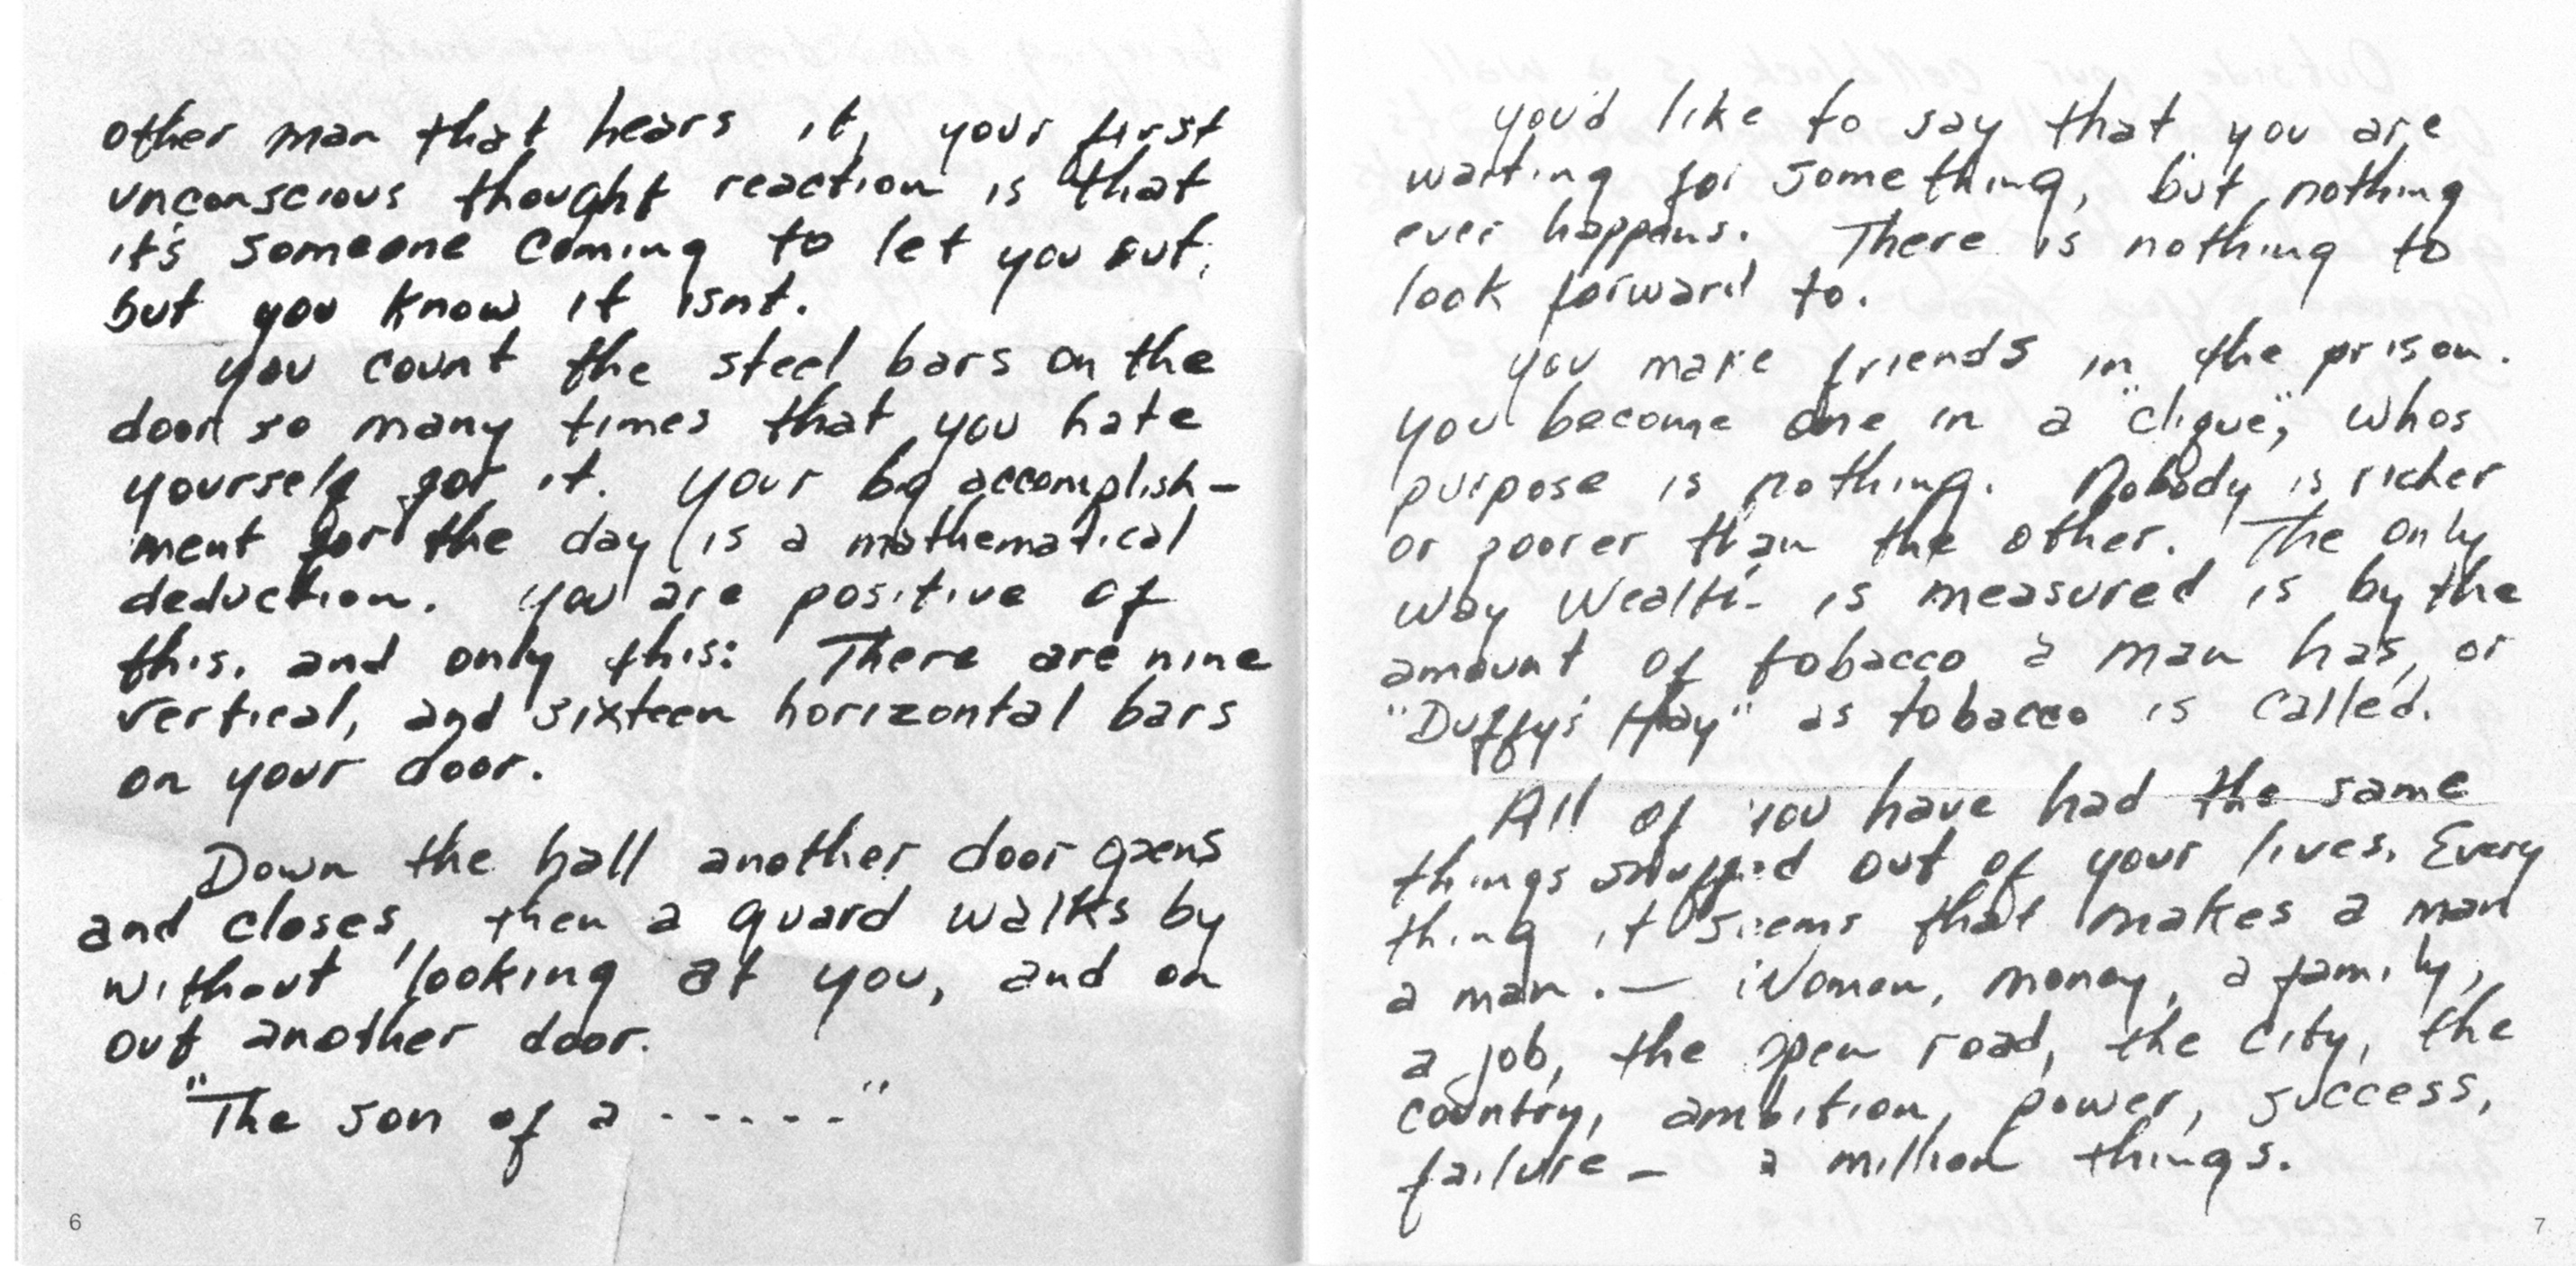 other man that hears it, your first
unconscious thought reaction is that
it's someone coming to let you out,
but you know it isnt.
you count the steel bars on the
door so many times that you hate
yourself for it. your big accomplish-
ment for the day is a mathematical
deduction. you are positive of
this, and only this: There are nine
vertical, and sixteen horizontal bars
on your door.
Down the hall another door opens
and closes, then a guard walks by
without looking at you, and on
out another door.
"The son of a ------"
6
you'd like to say that you are
waiting for something, but nothing
ever happens. There is nothing to
look forward to.
you make friends in the prison.
you become one in a "clique", whos
purpose is nothing. Nobody is richer
or poorer than the other. The only
way wealth is measured is by the
amount of tobacco a man has, or
"Duffy's Hay" as tobacco is called.
All of you have had the same
things snuffed out of your lives. Every
thing it seems that makes a man
a man. — Women, money, a family,
a job, the open road, the city, the
country, ambition, power, success,
failure — a million things.
7